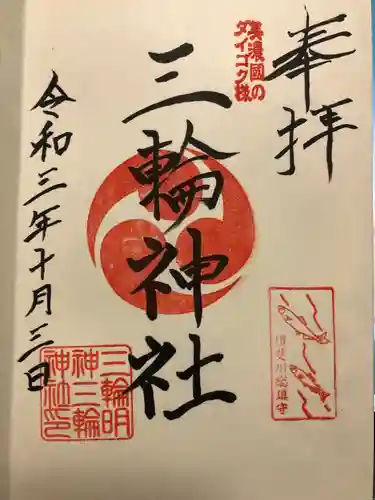 奉拝
美濃國の
ダイコク様
三輪神社
令和三年十月三日
三輪明
神三輪
神社印
揖斐川総鎮守